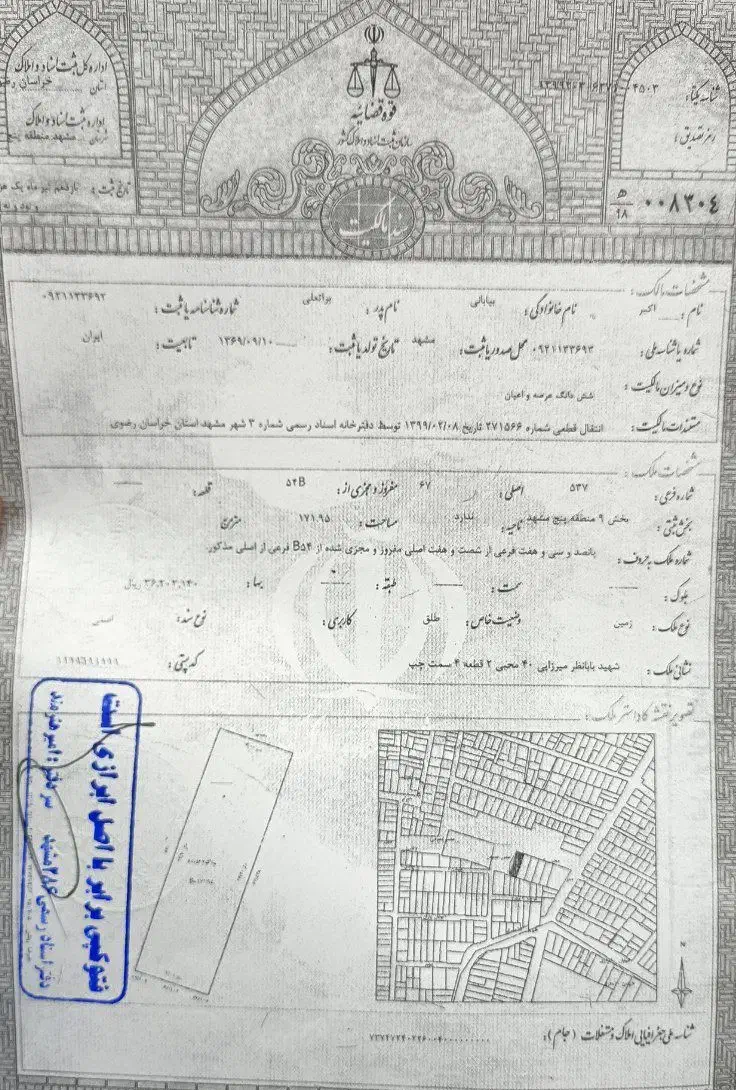 قوه قضائیه
سازمان ثبت اسناد و املاک کشور
سند مالکیت
اداره کل ثبت اسناد و املاک
استان خراسان
اداره ثبت اسناد و املاک
مشهد منطقه پنج
تاریخ ثبت: یازدهم تیر ماه یک
شناسه یکتا:
رمز تصدیق:
۰۰۸۳۰۴ ه‍ ۹۸
مشخصات مالک:
نام: اکبر نام خانوادگی: بیابانی نام پدر: براتعلی شماره شناسنامه یا ثبت: ۰۹۲۱۱۳۳۶۹۳
شماره یا شناسه ملی: ۰۹۲۱۱۳۳۶۹۳ محل صدور یا ثبت: مشهد تاریخ تولد یا ثبت: ۱۳۶۹/۰۹/۱۰ تابعیت: ایران
نوع و میزان مالکیت: شش دانگ عرصه و اعیان
مستندات مالکیت: انتقال قطعی شماره ۲۷۱۵۶۶ تاریخ ۱۳۹۹/۰۲/۰۸ توسط دفترخانه اسناد رسمی شماره ۳ شهر مشهد استان خراسان رضوی
مشخصات ملک:
شماره فرعی: ۵۳۷ اصلی: ۶۷ مفروز و مجزی از: ۵۴B قطعه:
بخش ثبتی: بخش ۹ منطقه پنج مشهد ناحیه: ندارد مساحت: ۱۷۱.۹۵ مترمربع
شماره ملک به حروف: پانصد و سی و هفت فرعی از شصت و هفت اصلی مفروز و مجزی شده از B۵۴ فرعی از اصلی مذکور
بلوک: سمت: طبقه: بها: ۳۶,۲۰۳,۱۴۰ ریال
نوع ملک: زمین وضعیت خاص: طلق کاربری: نوع سند: اصلی
نشانی ملک: شهید بابانظر میرزایی ۴۰ محبی ۲ قطعه ۴ سمت چپ کد پستی:
تصویر نقشه کاداستر ملک:
فتوکپی برابر با اصل ابرازی است
سردفتر: امیر هنرمند
دفتر اسناد رسمی ۲۸۶ مشهد
N
شناسه ملی جغرافیایی املاک و مستغلات (جام):